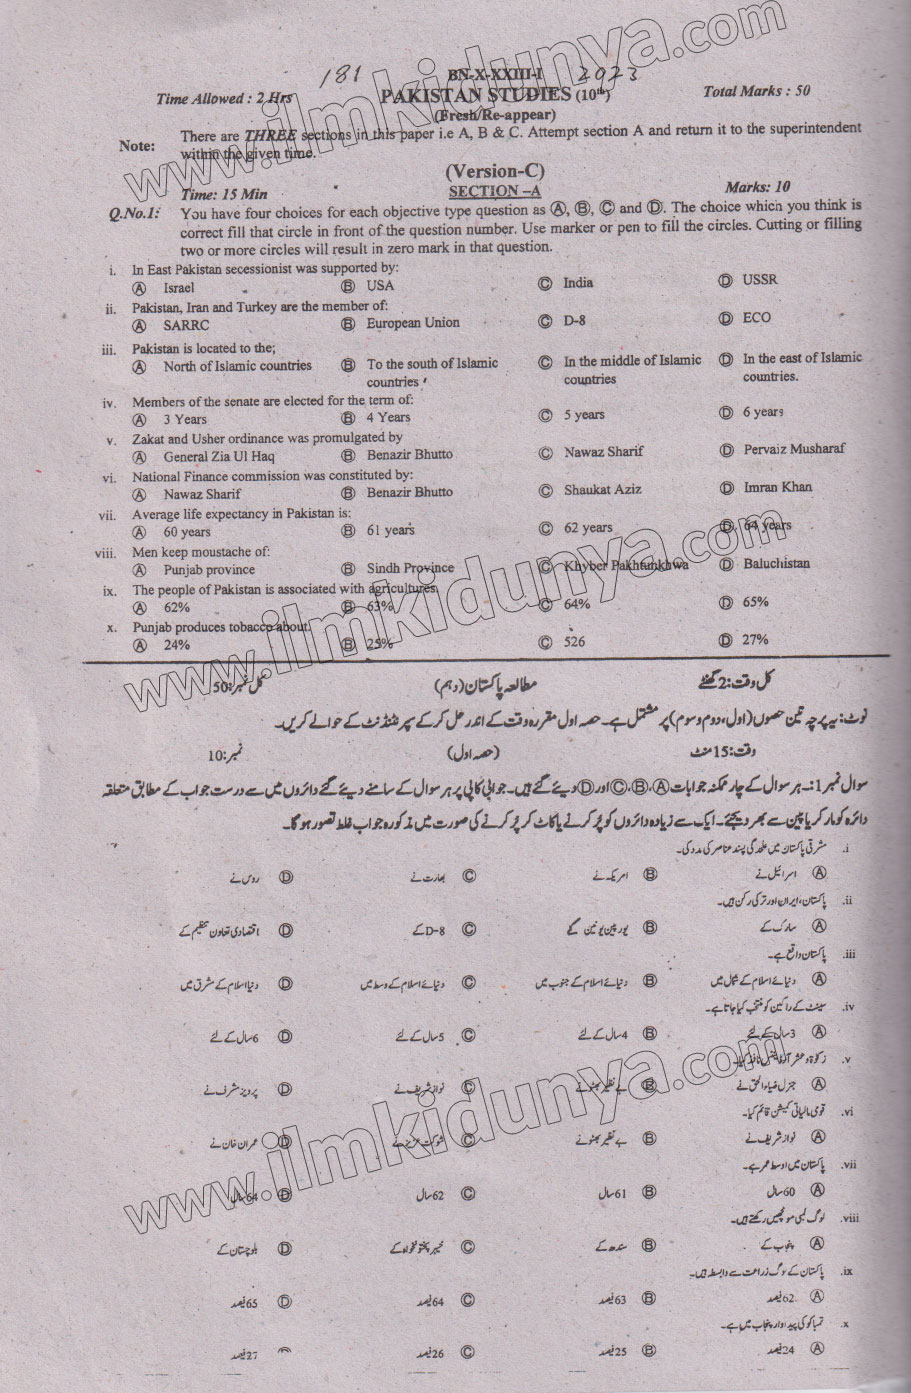 181 BN-X-XXIII-I 2023
Time Allowed : 2 Hrs PAKISTAN STUDIES (10th) Total Marks : 50
(Fresh/Re-appear)
Note: There are THREE sections in this paper i.e A, B & C. Attempt section A and return it to the superintendent
within the given time.
(Version-C)
Time: 15 Min SECTION –A Marks: 10
Q.No.1: You have four choices for each objective type question as Ⓐ, Ⓑ, Ⓒ and Ⓓ. The choice which you think is
correct fill that circle in front of the question number. Use marker or pen to fill the circles. Cutting or filling
two or more circles will result in zero mark in that question.
i. In East Pakistan secessionist was supported by:
Ⓐ Israel Ⓑ USA Ⓒ India Ⓓ USSR
ii. Pakistan, Iran and Turkey are the member of:
Ⓐ SARRC Ⓑ European Union Ⓒ D-8 Ⓓ ECO
iii. Pakistan is located to the;
Ⓐ North of Islamic countries Ⓑ To the south of Islamic countries Ⓒ In the middle of Islamic countries Ⓓ In the east of Islamic countries.
iv. Members of the senate are elected for the term of:
Ⓐ 3 Years Ⓑ 4 Years Ⓒ 5 years Ⓓ 6 years
v. Zakat and Usher ordinance was promulgated by
Ⓐ General Zia Ul Haq Ⓑ Benazir Bhutto Ⓒ Nawaz Sharif Ⓓ Pervaiz Musharaf
vi. National Finance commission was constituted by:
Ⓐ Nawaz Sharif Ⓑ Benazir Bhutto Ⓒ Shaukat Aziz Ⓓ Imran Khan
vii. Average life expectancy in Pakistan is:
Ⓐ 60 years Ⓑ 61 years Ⓒ 62 years Ⓓ 64 years
viii. Men keep moustache of:
Ⓐ Punjab province Ⓑ Sindh Province Ⓒ Khyber Pakhtunkhwa Ⓓ Baluchistan
ix. The people of Pakistan is associated with agricultures.
Ⓐ 62% Ⓑ 63% Ⓒ 64% Ⓓ 65%
x. Punjab produces tobacco about.
Ⓐ 24% Ⓑ 25% Ⓒ 526 Ⓓ 27%
کل وقت: 2 گھنٹے مطالعہ پاکستان (دہم) کل نمبر: 50
نوٹ: یہ پرچہ تین حصوں (اول، دوم و سوم) پر مشتمل ہے۔ حصہ اول مقررہ وقت کے اندر حل کر کے سپرنٹنڈنٹ کے حوالے کریں۔
وقت: 15 منٹ (حصہ اول) نمبر: 10
سوال نمبر 1:۔ ہر سوال کے چار ممکنہ جوابات Ⓐ، Ⓑ، Ⓒ اور Ⓓ دیئے گئے ہیں۔ جوابی کاپی پر ہر سوال کے سامنے دیئے گئے دائروں میں سے درست جواب کے مطابق متعلقہ
دائرہ کو مارکر یا پین سے بھر دیجئے۔ ایک سے زیادہ دائروں کو پُر کرنے یا کاٹ کر پُر کرنے کی صورت میں مذکورہ جواب غلط تصور ہوگا۔
i. مشرقی پاکستان میں علیحدگی پسند عناصر کی مدد کی۔
Ⓐ اسرائیل نے Ⓑ امریکہ نے Ⓒ بھارت نے Ⓓ روس نے
ii. پاکستان، ایران اور ترکی رکن ہیں۔
Ⓐ سارک کے Ⓑ یورپین یونین کے Ⓒ D-8 کے Ⓓ اقتصادی تعاون تنظیم کے
iii. پاکستان واقع ہے۔
Ⓐ دنیائے اسلام کے شمال میں Ⓑ دنیائے اسلام کے جنوب میں Ⓒ دنیائے اسلام کے وسط میں Ⓓ دنیا اسلام کے مشرق میں
iv. سینٹ کے اراکین کو منتخب کیا جاتا ہے۔
Ⓐ 3 سال کے لئے Ⓑ 4 سال کے لئے Ⓒ 5 سال کے لئے Ⓓ 6 سال کے لئے
v. زکوٰۃ و عشر آرڈیننس نافذ کیا۔
Ⓐ جنرل ضیاء الحق نے Ⓑ بے نظیر بھٹو نے Ⓒ نواز شریف نے Ⓓ پرویز مشرف نے
vi. قومی مالیاتی کمیشن قائم کیا۔
Ⓐ نواز شریف نے Ⓑ بے نظیر بھٹو نے Ⓒ شوکت عزیز نے Ⓓ عمران خان نے
vii. پاکستان میں اوسط عمر ہے۔
Ⓐ 60 سال Ⓑ 61 سال Ⓒ 62 سال Ⓓ 64 سال
viii. لوگ لمبی مونچھیں رکھتے ہیں۔
Ⓐ پنجاب کے Ⓑ سندھ کے Ⓒ خیبر پختونخواہ کے Ⓓ بلوچستان کے
ix. پاکستان کے لوگ زراعت سے وابستہ ہیں۔
Ⓐ 62 فیصد Ⓑ 63 فیصد Ⓒ 64 فیصد Ⓓ 65 فیصد
x. تمباکو کی پیداوار پنجاب میں ہے۔
Ⓐ 24 فیصد Ⓑ 25 فیصد Ⓒ 26 فیصد 27 فیصد
www.ilmkidunya.com
www.ilmkidunya.com
www.ilmkidunya.com